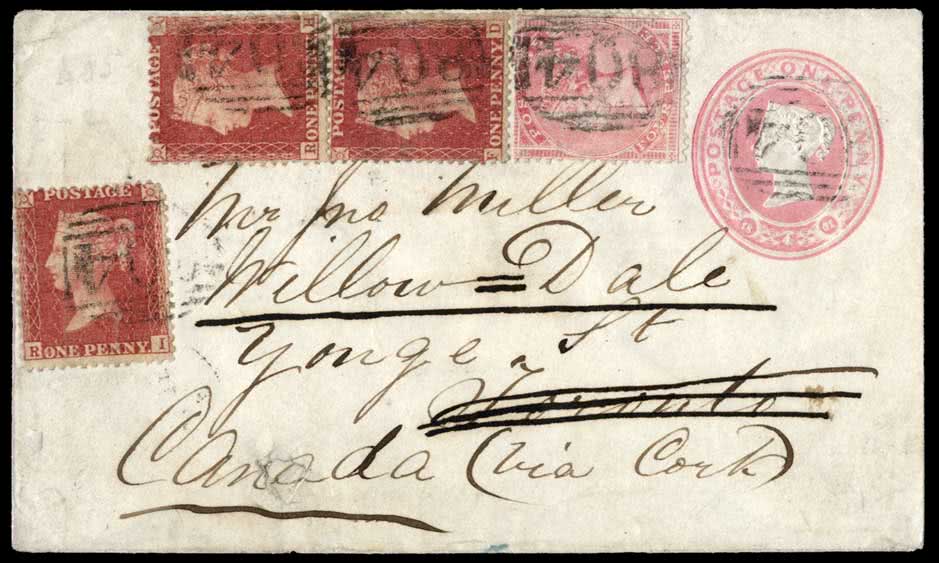 POSTAGE
R ONE PENNY H
POSTAGE
ONE PENNY D
POSTAGE ONE PENNY
POSTAGE
R ONE PENNY I
Mr Jno Miller
Willow=Dale
Yonge St
Toronto
Canada (via Cork)